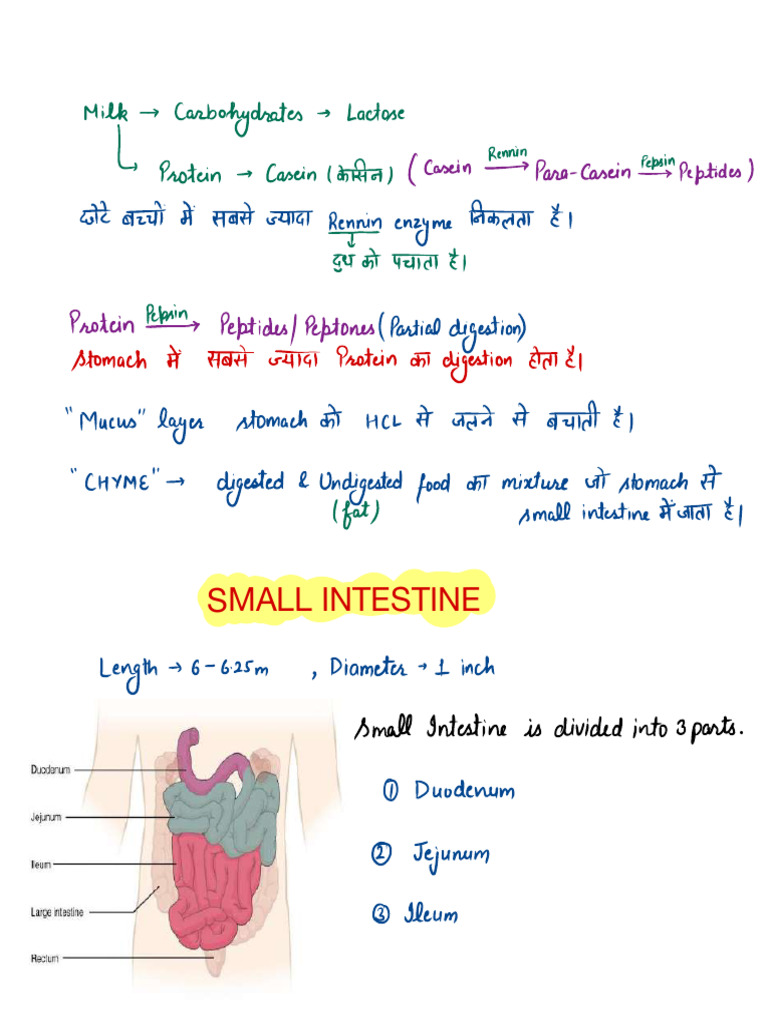 Milk → Carbohydrates → Lactose
Protein → Casein (केसीन) (Casein Rennin → Para-Casein Pepsin → Peptides)
छोटे बच्चों में सबसे ज्यादा Rennin enzyme निकलता है।
दुध को पचाता है।
Protein Pepsin → Peptides/Peptones (Partial digestion)
Stomach में सबसे ज्यादा Protein का digestion होता है।
"Mucus" layer stomach को HCL से जलने से बचाती है।
"CHYME" → digested & Undigested food का mixture जो stomach से
(fat) small intestine में जाता है।
SMALL INTESTINE
Length → 6 - 6.25m , Diameter → 1 inch
Small Intestine is divided into 3 parts.
Duodenum
① Duodenum
Jejunum
② Jejunum
Ileum
Large intestine
③ Ileum
Rectum